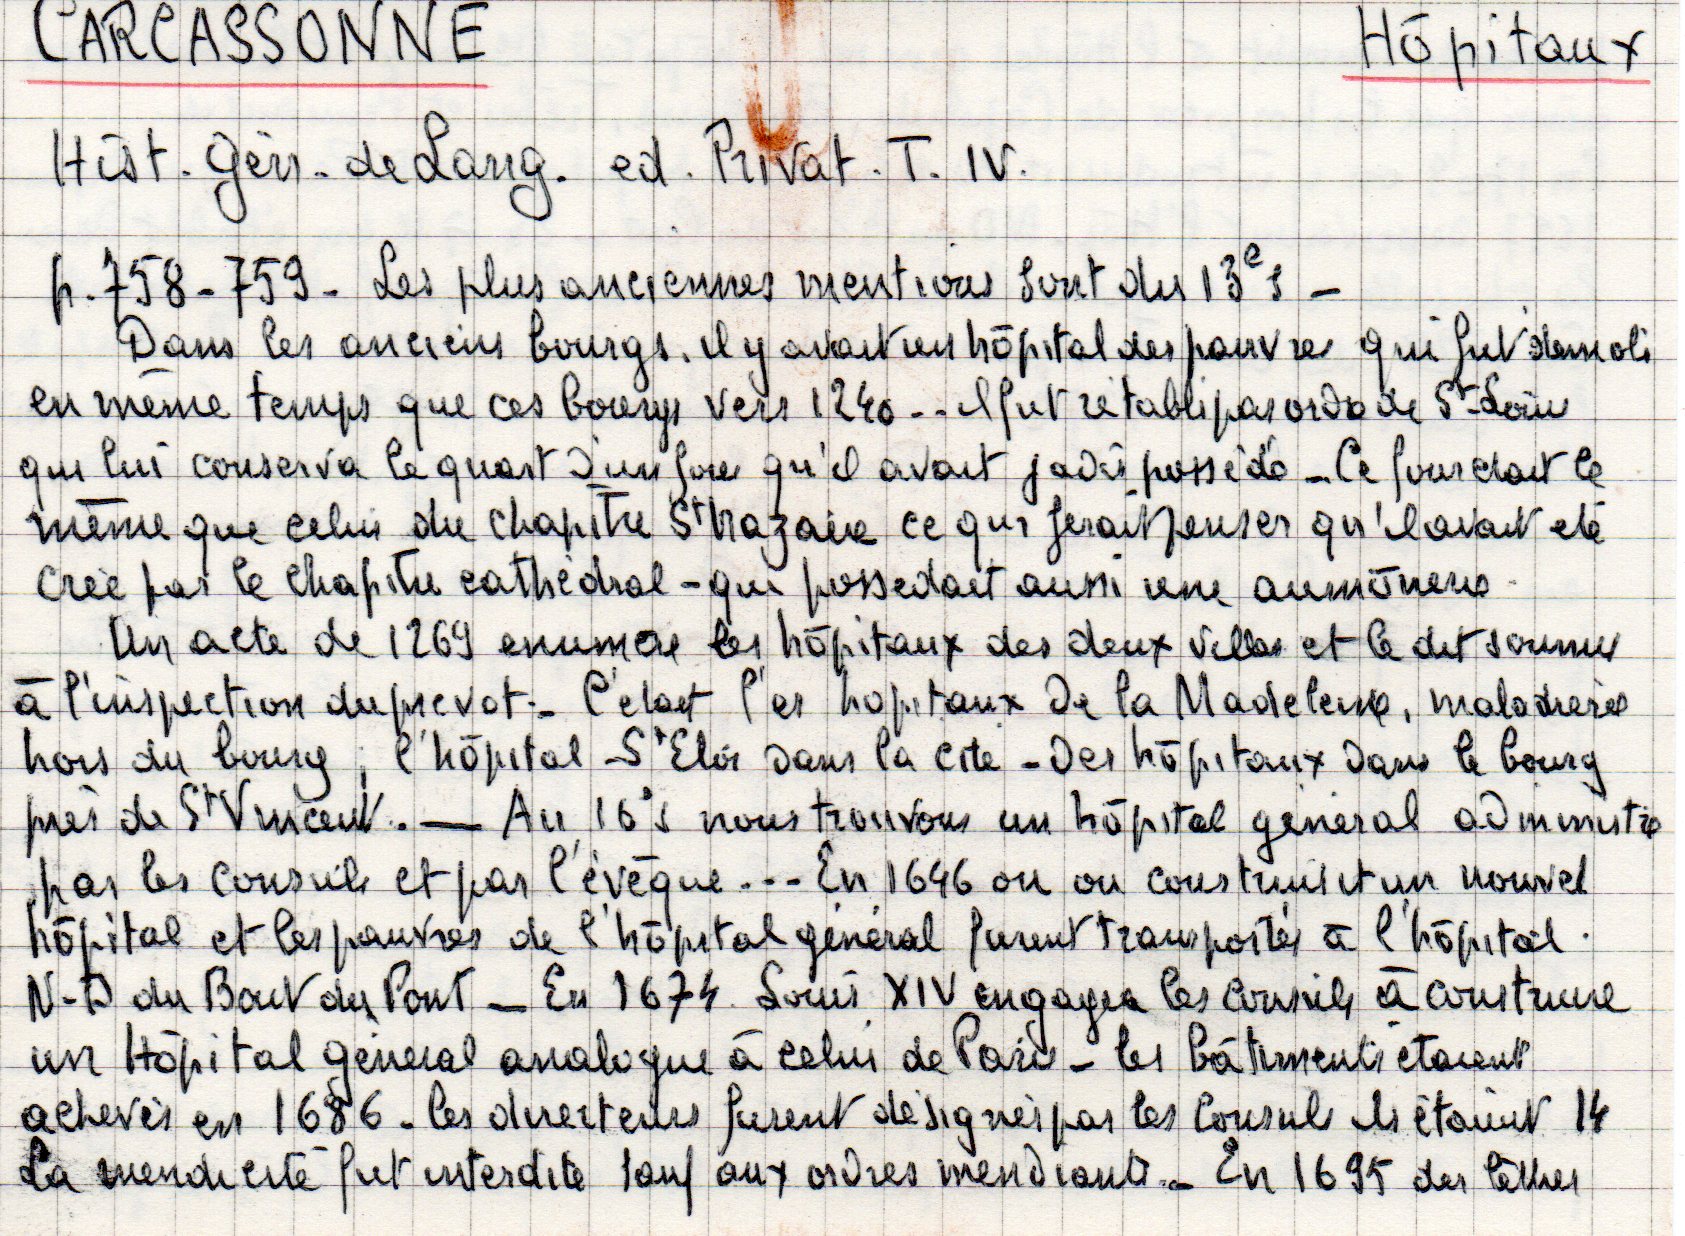 CARCASSONNE Hôpitaux
Hist. Gén. de Lang. ed. Privat. T. IV.
p. 758-759 - Les plus anciennes mentions sont du 13e s -
Dans les anciens bourgs. il y avait un hôpital des pauvres qui fut démoli
en même temps que ces bourgs vers 1240 -- il fut rétabli par ordre de St-Louis
qui lui conserva le quart d'un four qu'il avait jadis possédé - Ce four était le
même que celui du chapitre St Nazaire ce qui ferait penser qu'il avait été
créé par le chapitre cathédral - qui possedait aussi une aumônerie.
Un acte de 1269 enumère les hôpitaux des deux villes et le dit soumis
à l'inspection du prevot - C'était les hopitaux de la Madeleine, maladrerie
hors du bourg ; l'hôpital St Eloi dans la cité - Des hôpitaux dans le bourg
près de St Vincent. — Au 16e s nous trouvons un hôpital général administré
par les consuls et par l'évêque --- En 1646 on on construisit un nouvel
hôpital et les pauvres de l'hôpital général furent transportés à l'hôpital.
N-D du Bout du Pont - En 1674 Louis XIV engagea les consuls à construire
un Hôpital général analogue à celui de Paris - les bâtiments étaient
achevés en 1686 - les directeurs furent désignés par les Consuls ils étaient 14
La mendicité fut interdite sauf aux ordres mendiants - En 1695 des lettres